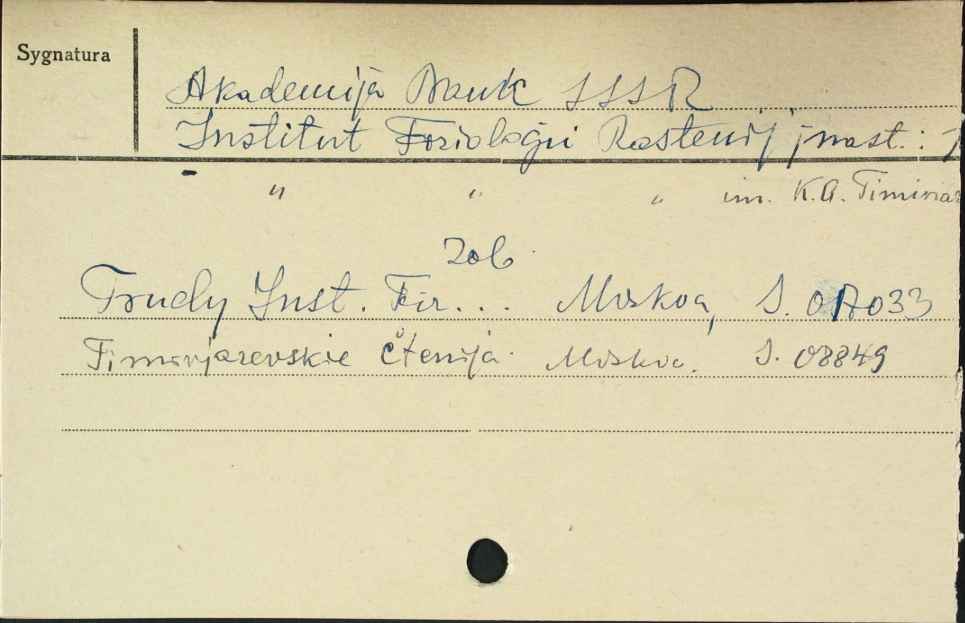 Sygnatura
Akademija Nauk SSSR
Institut Fiziologii Rastenij, nast.:
" " " im. K.A. Timiria
Zob.
Trudy Inst. Fiz... Moskva, S. 017033
Timirjazevskie Čtenija. Moskva. S. 08849